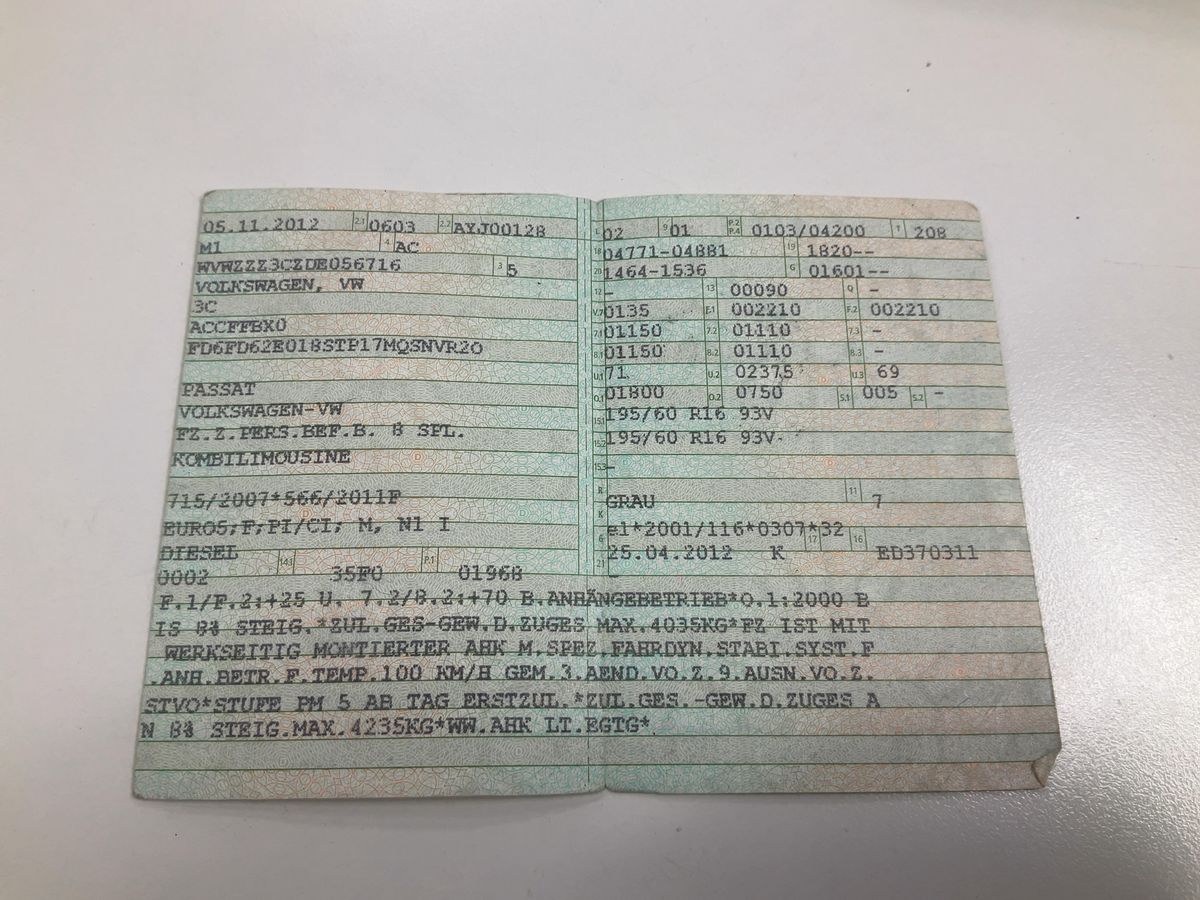 05.11.2012 2.1 0603 2.2 AYJ00128
M1 4 AC
WVWZZZ3CZDE056716 3 5
VOLKSWAGEN, VW
3C
ACCFFBX0
FD6FD62E018STP17MQSNVR2O
PASSAT
VOLKSWAGEN-VW
FZ.Z.PERS.BEF.B. 8 SPL.
KOMBILIMOUSINE
715/2007*566/2011F
EURO5;F;PI/CI; M, N1 I
DIESEL
0002 14.1 35F0 P.1 01968
L 02 9 01 P.2 P.4 0103/04200 T 208
18 04771-04881 19 1820--
20 1464-1536 G 01601--
12 - 13 00090 Q -
V.7 0135 F.1 002210 F.2 002210
7.1 01150 7.2 01110 7.3 -
8.1 01150 8.2 01110 8.3 -
U.1 71 U.2 02375 U.3 69
O.1 01800 O.2 0750 S.1 005 S.2 -
15.1 195/60 R16 93V
15.2 195/60 R16 93V
15.3 -
R GRAU 11 7
K e1*2001/116*0307*32
6 25.04.2012 17 K 16 ED370311
21 -
F.1/F.2:+25 U. 7.2/8.2:+70 B.ANHÄNGEBETRIEB*O.1:2000 B
IS 8% STEIG.*ZUL.GES-GEW.D.ZUGES MAX.4035KG*FZ IST MIT
WERKSEITIG MONTIERTER AHK M.SPEZ.FAHRDYN.STABI.SYST.F
.ANH.BETR.F.TEMP.100 KM/H GEM.3.AEND.VO.Z.9.AUSN.VO.Z.
STVO*STUFE PM 5 AB TAG ERSTZUL.*ZUL.GES.-GEW.D.ZUGES A
N 8% STEIG.MAX.4235KG*WW.AHK LT.EGTG*